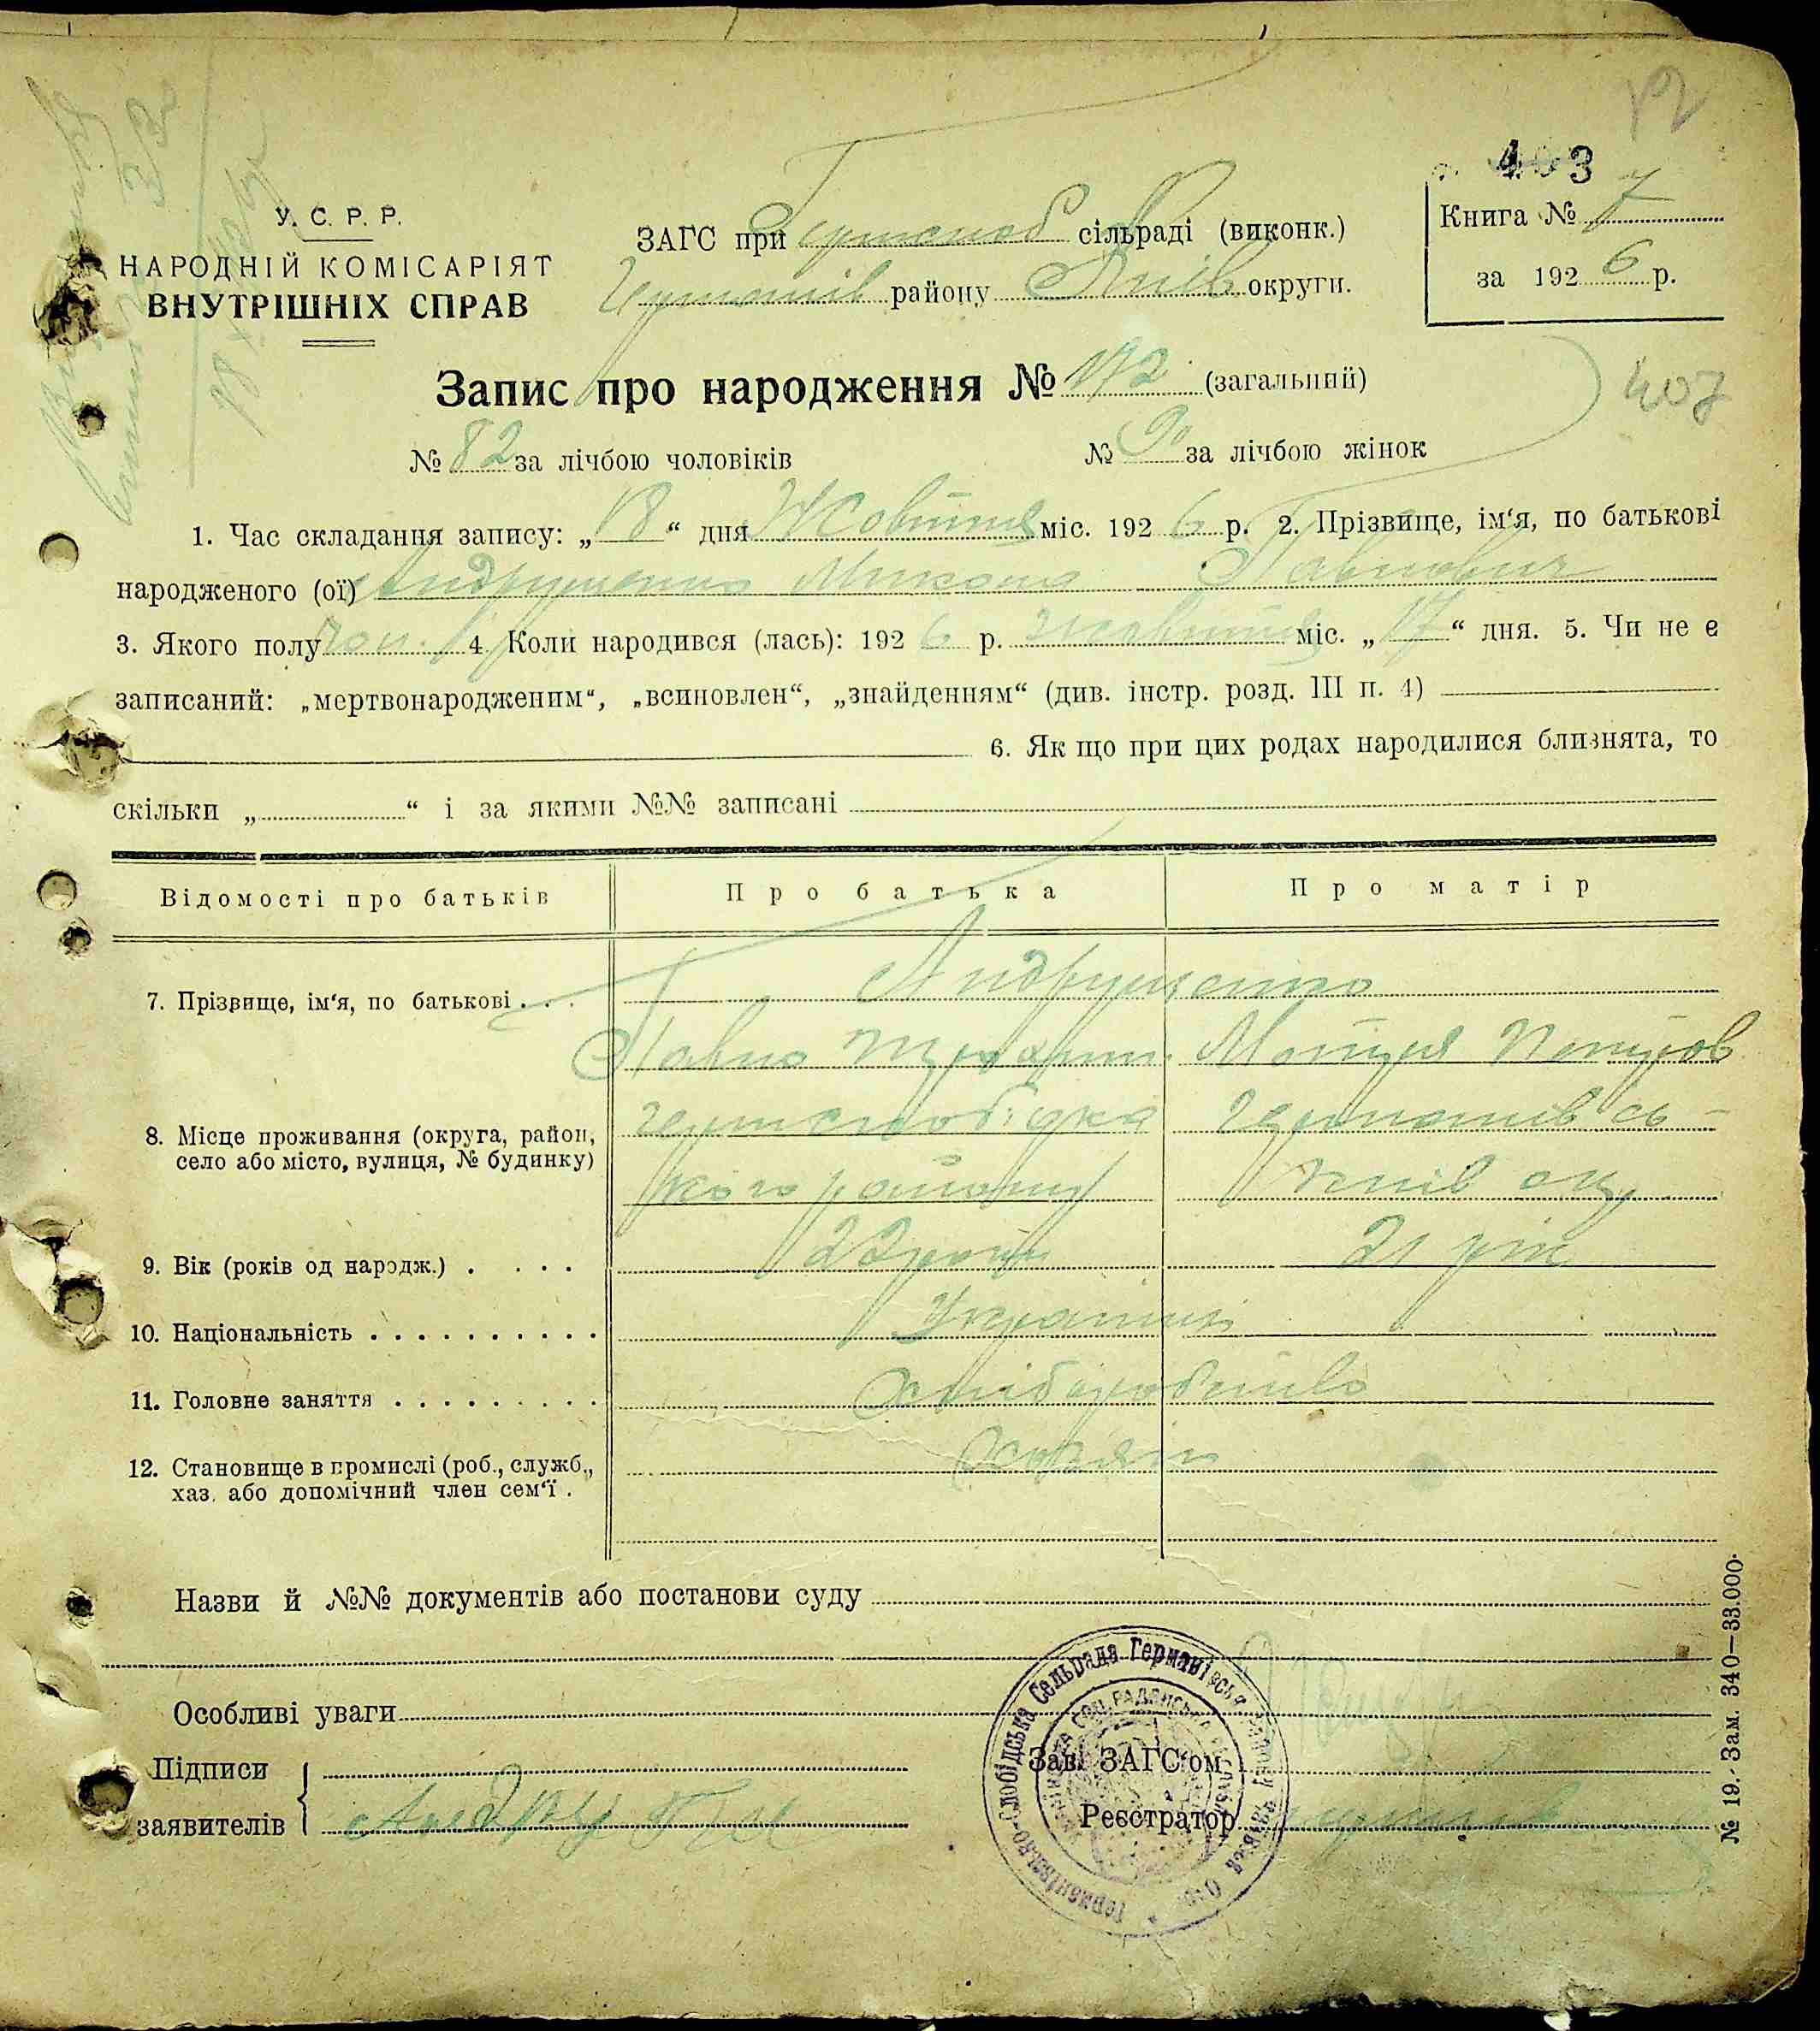 403
Книга № 7
за 1926 р.
407
У. С. Р. Р.
НАРОДНІЙ КОМІСАРІЯТ
ВНУТРІШНІХ СПРАВ
ЗАГС при сільраді (виконк.)
району Київ округи.
Запис про народження № 172 (загальний)
№ 82 за лічбою чоловіків № 90 за лічбою жінок
1. Час складання запису: „18“ дня Жовтня міс. 1926 р. 2. Прізвище, ім‘я, по батькові
народженого (ої) Андрущенко Микола Павлович
3. Якого полу чол. 4. Коли народився (лась): 1926 р. жовтня міс. „17“ дня. 5. Чи не є
записаний: „мертвонародженим“, „всиновлен“, „знайденням“ (див. інстр. розд. III п. 4)
6. Як що при цих родах народилися близнята, то
скільки „ “ і за якими №№ записані
Відомості про батьків Про батька Про матір
7. Прізвище, ім‘я, по батькові . . . Андрущенко
Павло Мотря
8. Місце проживання (округа, район,
село або місто, вулиця, № будинку)
кого району Київ окр
9. Вік (років од народж.) . . . . . 22 роки 21 рік
10. Національність . . . . . . . . . . Українці
11. Головне заняття . . . . . . . . . Хліборобство
12. Становище в промислі (роб., служб.,
хаз. або допомічний член сем‘ї .
Назви й №№ документів або постанови суду
Особливі уваги
Підписи
заявителів
Зав. ЗАГС‘ом
Реєстратор
№ 19.-Зам. 340—33.000.